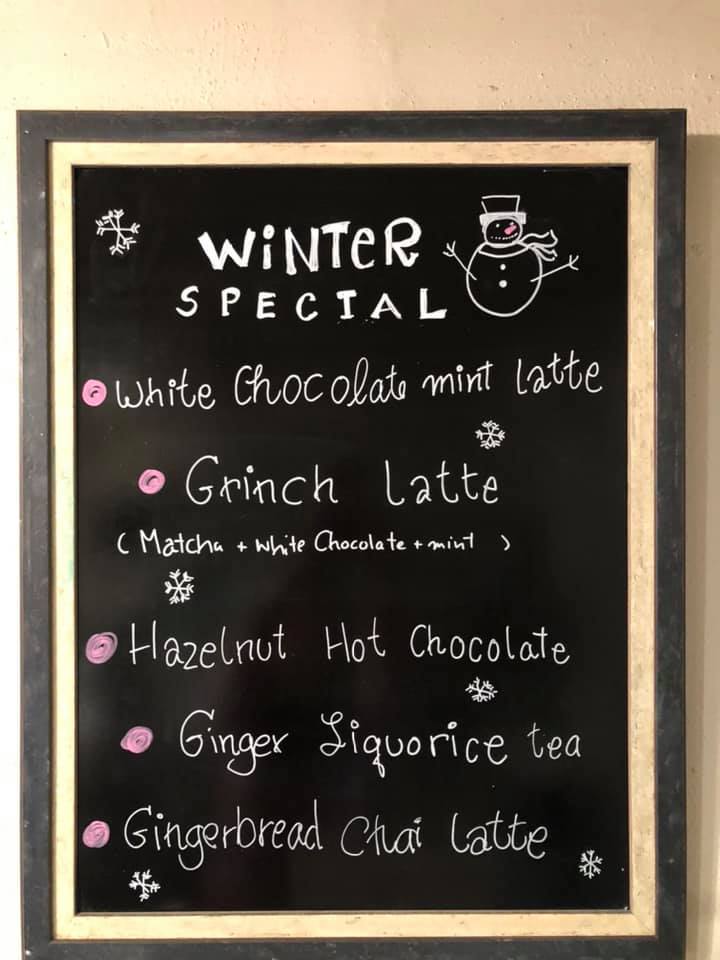 WiNTeR
SPECIAL
White Chocolate mint latte
Grinch Latte
( Matcha + White Chocolate + mint )
Hazelnut Hot Chocolate
Ginger Liquorice tea
Gingerbread Chai Latte